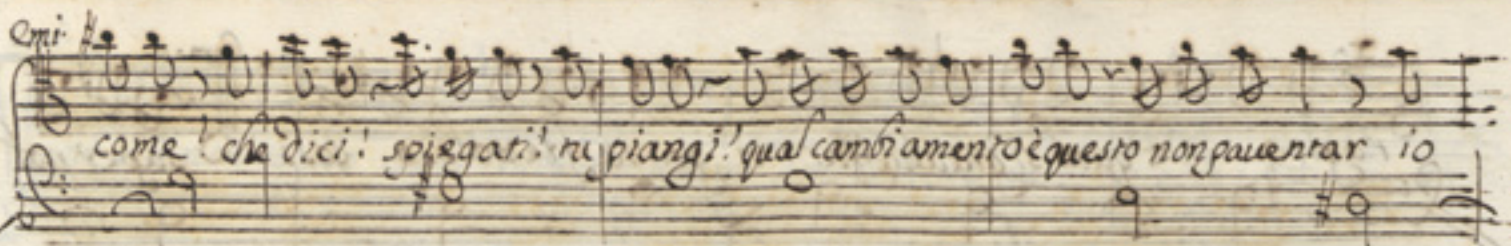 Emi.
come! che dici! spiegati! tu piangi! qual cambiamento è questo non paventar io